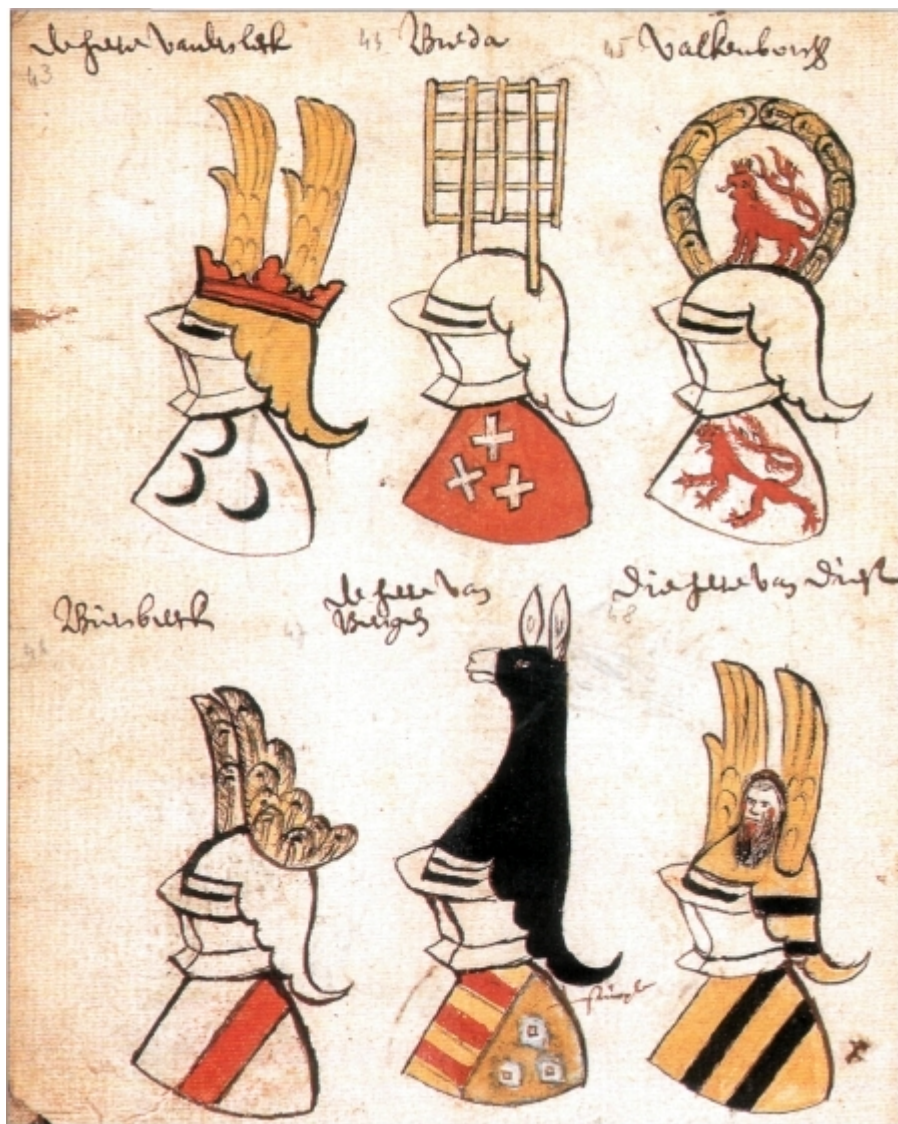 de here vander lerk
43
43 Breda
45 valkenborch
46 Wiesbeerk
47 de here van
Bergen
Die here van Diest
48